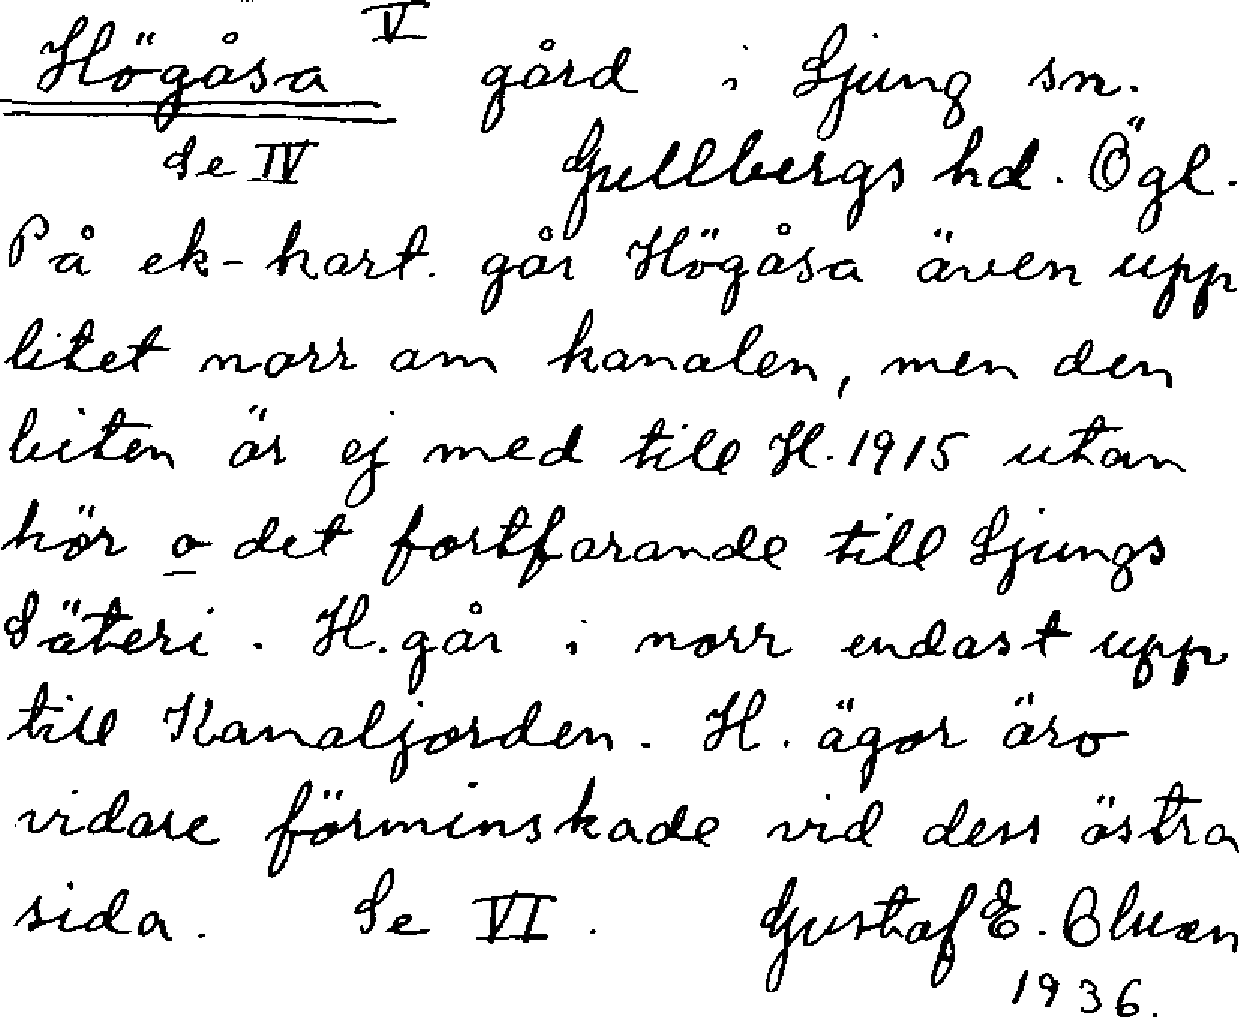 Högåsa V gård i Ljung sn.
Se IV Gullbergs hd. Ögl.
På ek-kart. går Högåsa även upp
litet norr om kanalen, men den
biten är ej med till H. 1915 utan
hör o det fortfarande till Ljungs
Säteri. H. går i norr endast upp
till Kanaljorden. H. ägor äro
vidare förminskade vid dess östra
sida. Se VI. Gustaf E.
1936.